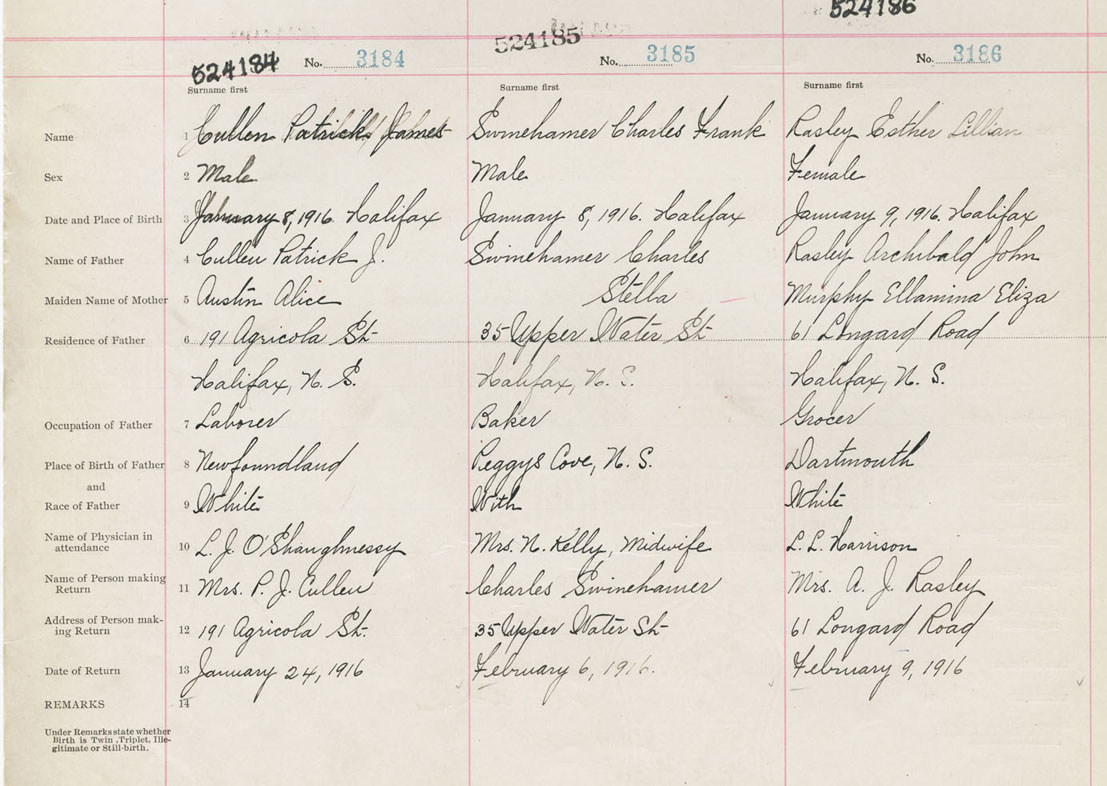 524186
524184 No. 3184 524185 No. 3185 No. 3186
Surname first Surname first Surname first
Name 1 Cullen Patrick James Swinehamer Charles Frank Rasley Esther Lillian
Sex 2 Male Male Female
Date and Place of Birth 3 January 8, 1916. Halifax January 8, 1916. Halifax January 9, 1916. Halifax
Name of Father 4 Cullen Patrick J. Swinehamer Charles Rasley Archibald John
Maiden Name of Mother 5 Austin Alice Stella Murphy Ellamina Eliza
Residence of Father 6 191 Agricola St- 35 Upper Water St- 61 Longard Road
Halifax, N. S. Halifax, N. S. Halifax, N. S.
Occupation of Father 7 Laborer Baker Grocer
Place of Birth of Father 8 Newfoundland Peggys Cove, N. S. Dartmouth
and
Race of Father 9 White With White
Name of Physician in
attendance 10 L. J. O'Shaughnessy Mrs. N. Kelly, Midwife L. L. Harrison
Name of Person making
Return 11 Mrs. P. J. Cullen Charles Swinehamer Mrs. A. J. Rasley
Address of Person mak-
ing Return 12 191 Agricola St. 35 Upper Water St- 61 Longard Road
Date of Return 13 January 24, 1916 February 6, 1916. February 9, 1916
REMARKS 14
Under Remarks state whether
Birth is Twin, Triplet, Ille-
gitimate or Still-birth.